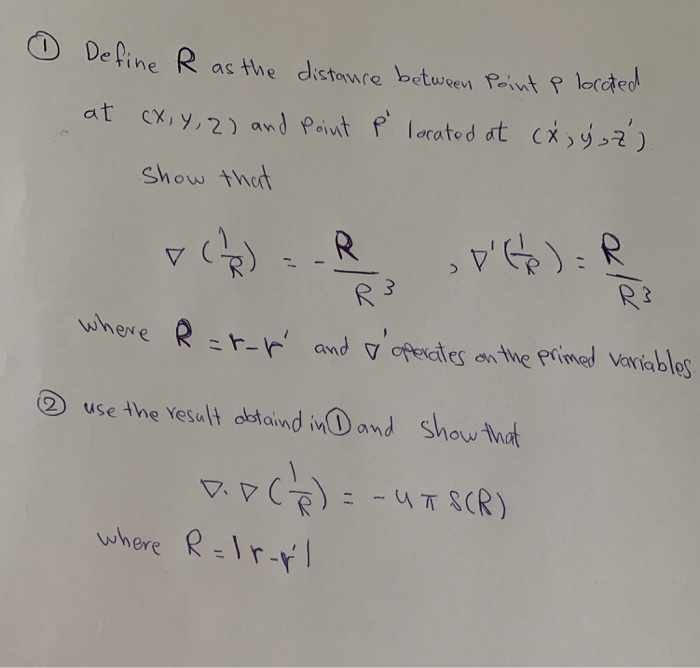 ① Define R as the distance between Point P located
at (x, y, z) and Point P' located at (x', y', z')
Show that
∇ (1/R) = - R/R³ , ∇'(1/R) = R/R³
where R = r - r' and ∇' operates on the primed variables
② use the result obtaind in ① and show that
∇.∇ (1/R) = -4π δ(R)
where R = |r - r'|